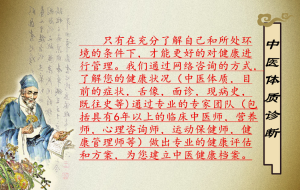 只有在充分了解自己和所处环
境的条件下，才能更好的对健康进
行管理。我们通过网络咨询的方式，
了解您的健康状况（中医体质，目
前的症状，舌像，面诊，现病史，
既往史等）通过专业的专家团队（包
括具有6年以上的临床中医师，营养
师，心理咨询师，运动保健师，健
康管理师等）做出专业的健康评估
和方案，为您建立中医健康档案。
中医体质诊断